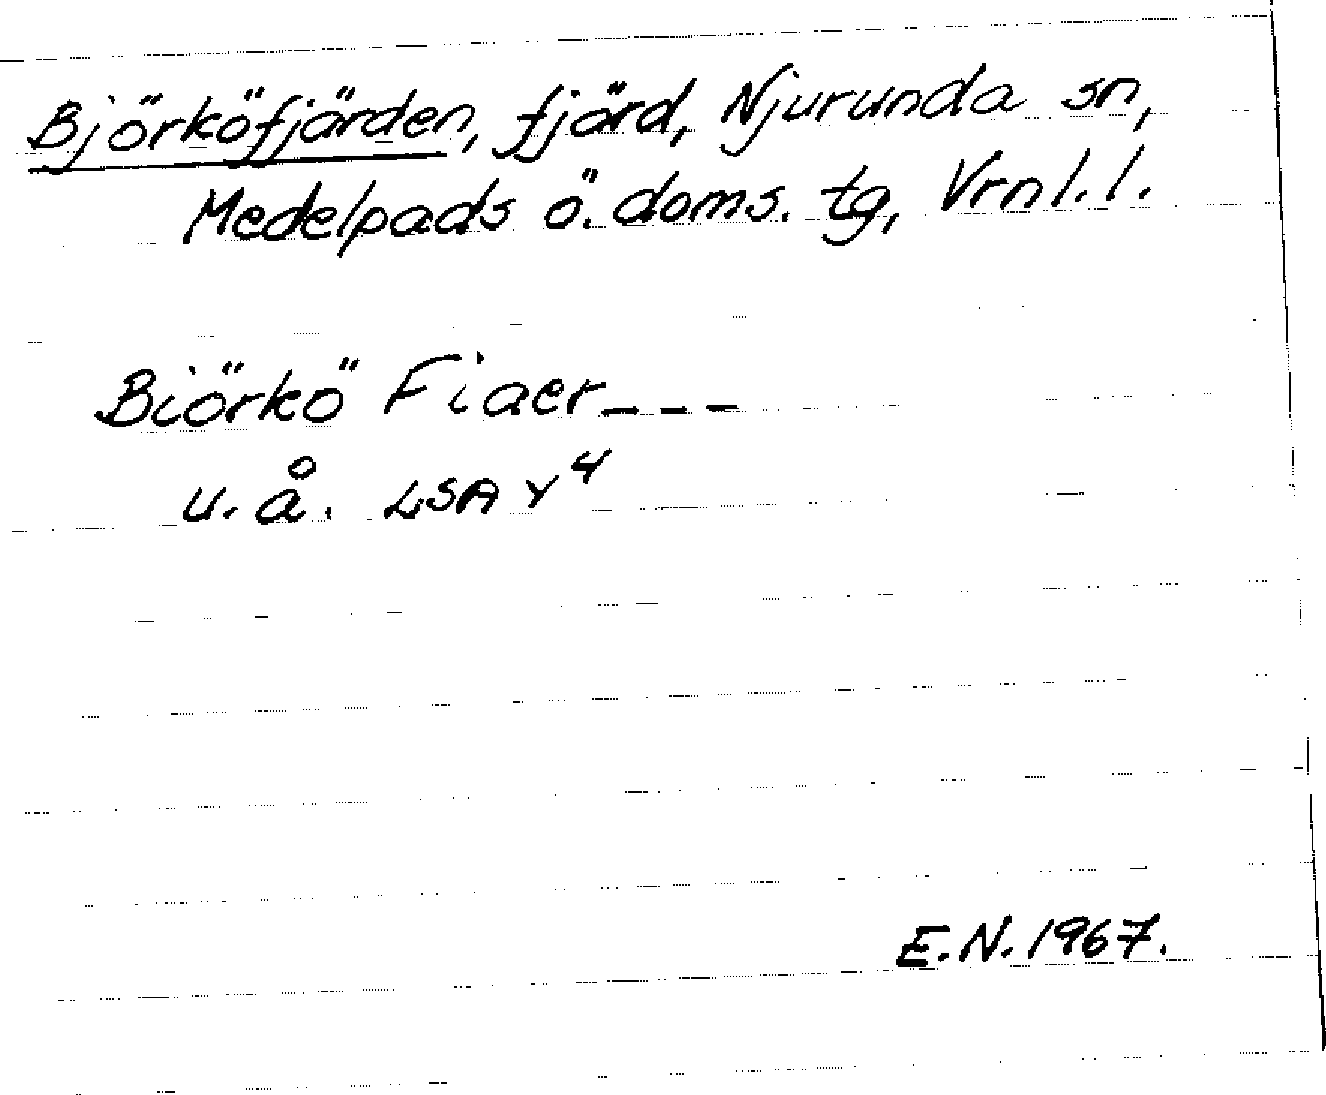 Björköfjärden, fjärd, Njurunda sn,
Medelpads ö. doms. tg, Vrnl. l.
Biörkö Fiaer---
u. å. LSA Y4
E.N. 1967.